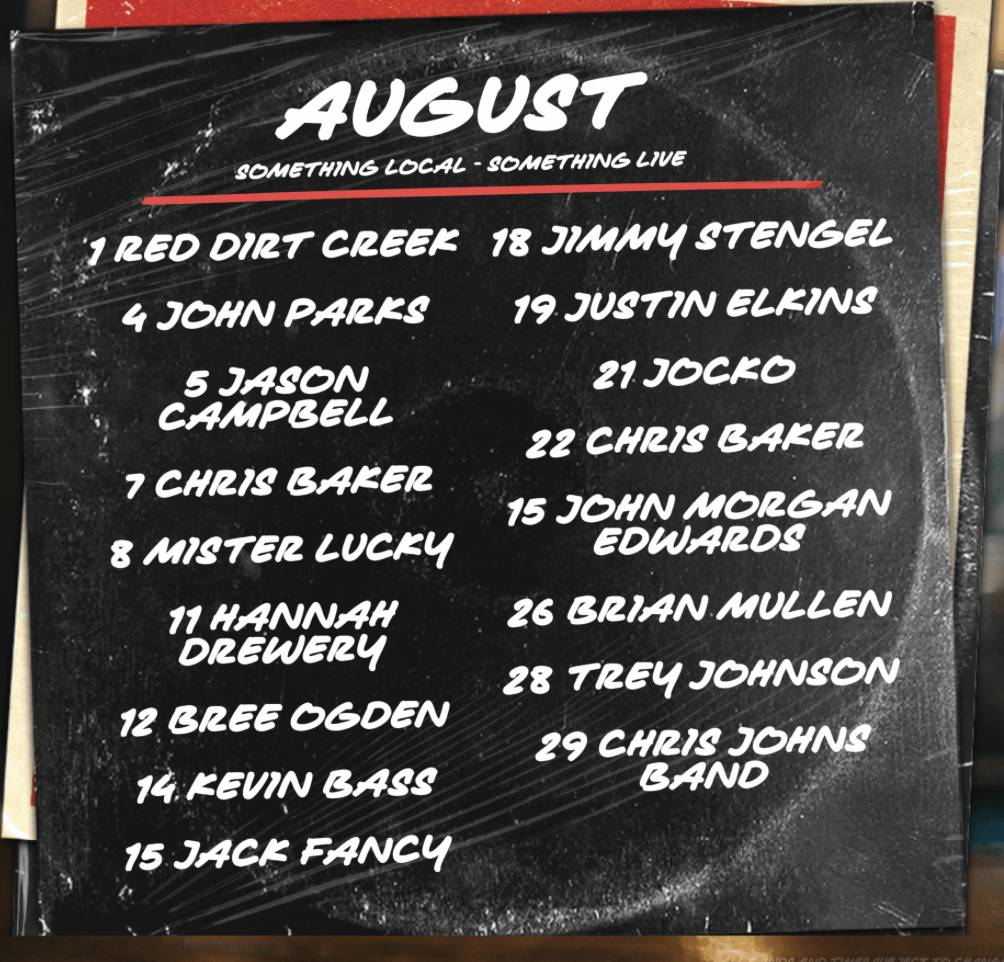 AUGUST
SOMETHING LOCAL - SOMETHING LIVE
1 RED DIRT CREEK
4 JOHN PARKS
5 JASON
CAMPBELL
7 CHRIS BAKER
8 MISTER LUCKY
11 HANNAH
DREWERY
12 BREE OGDEN
14 KEVIN BASS
15 JACK FANCY
18 JIMMY STENGEL
19 JUSTIN ELKINS
21 JOCKO
22 CHRIS BAKER
15 JOHN MORGAN
EDWARDS
26 BRIAN MULLEN
28 TREY JOHNSON
29 CHRIS JOHNS
BAND
AND TIMES SUBJECT TO